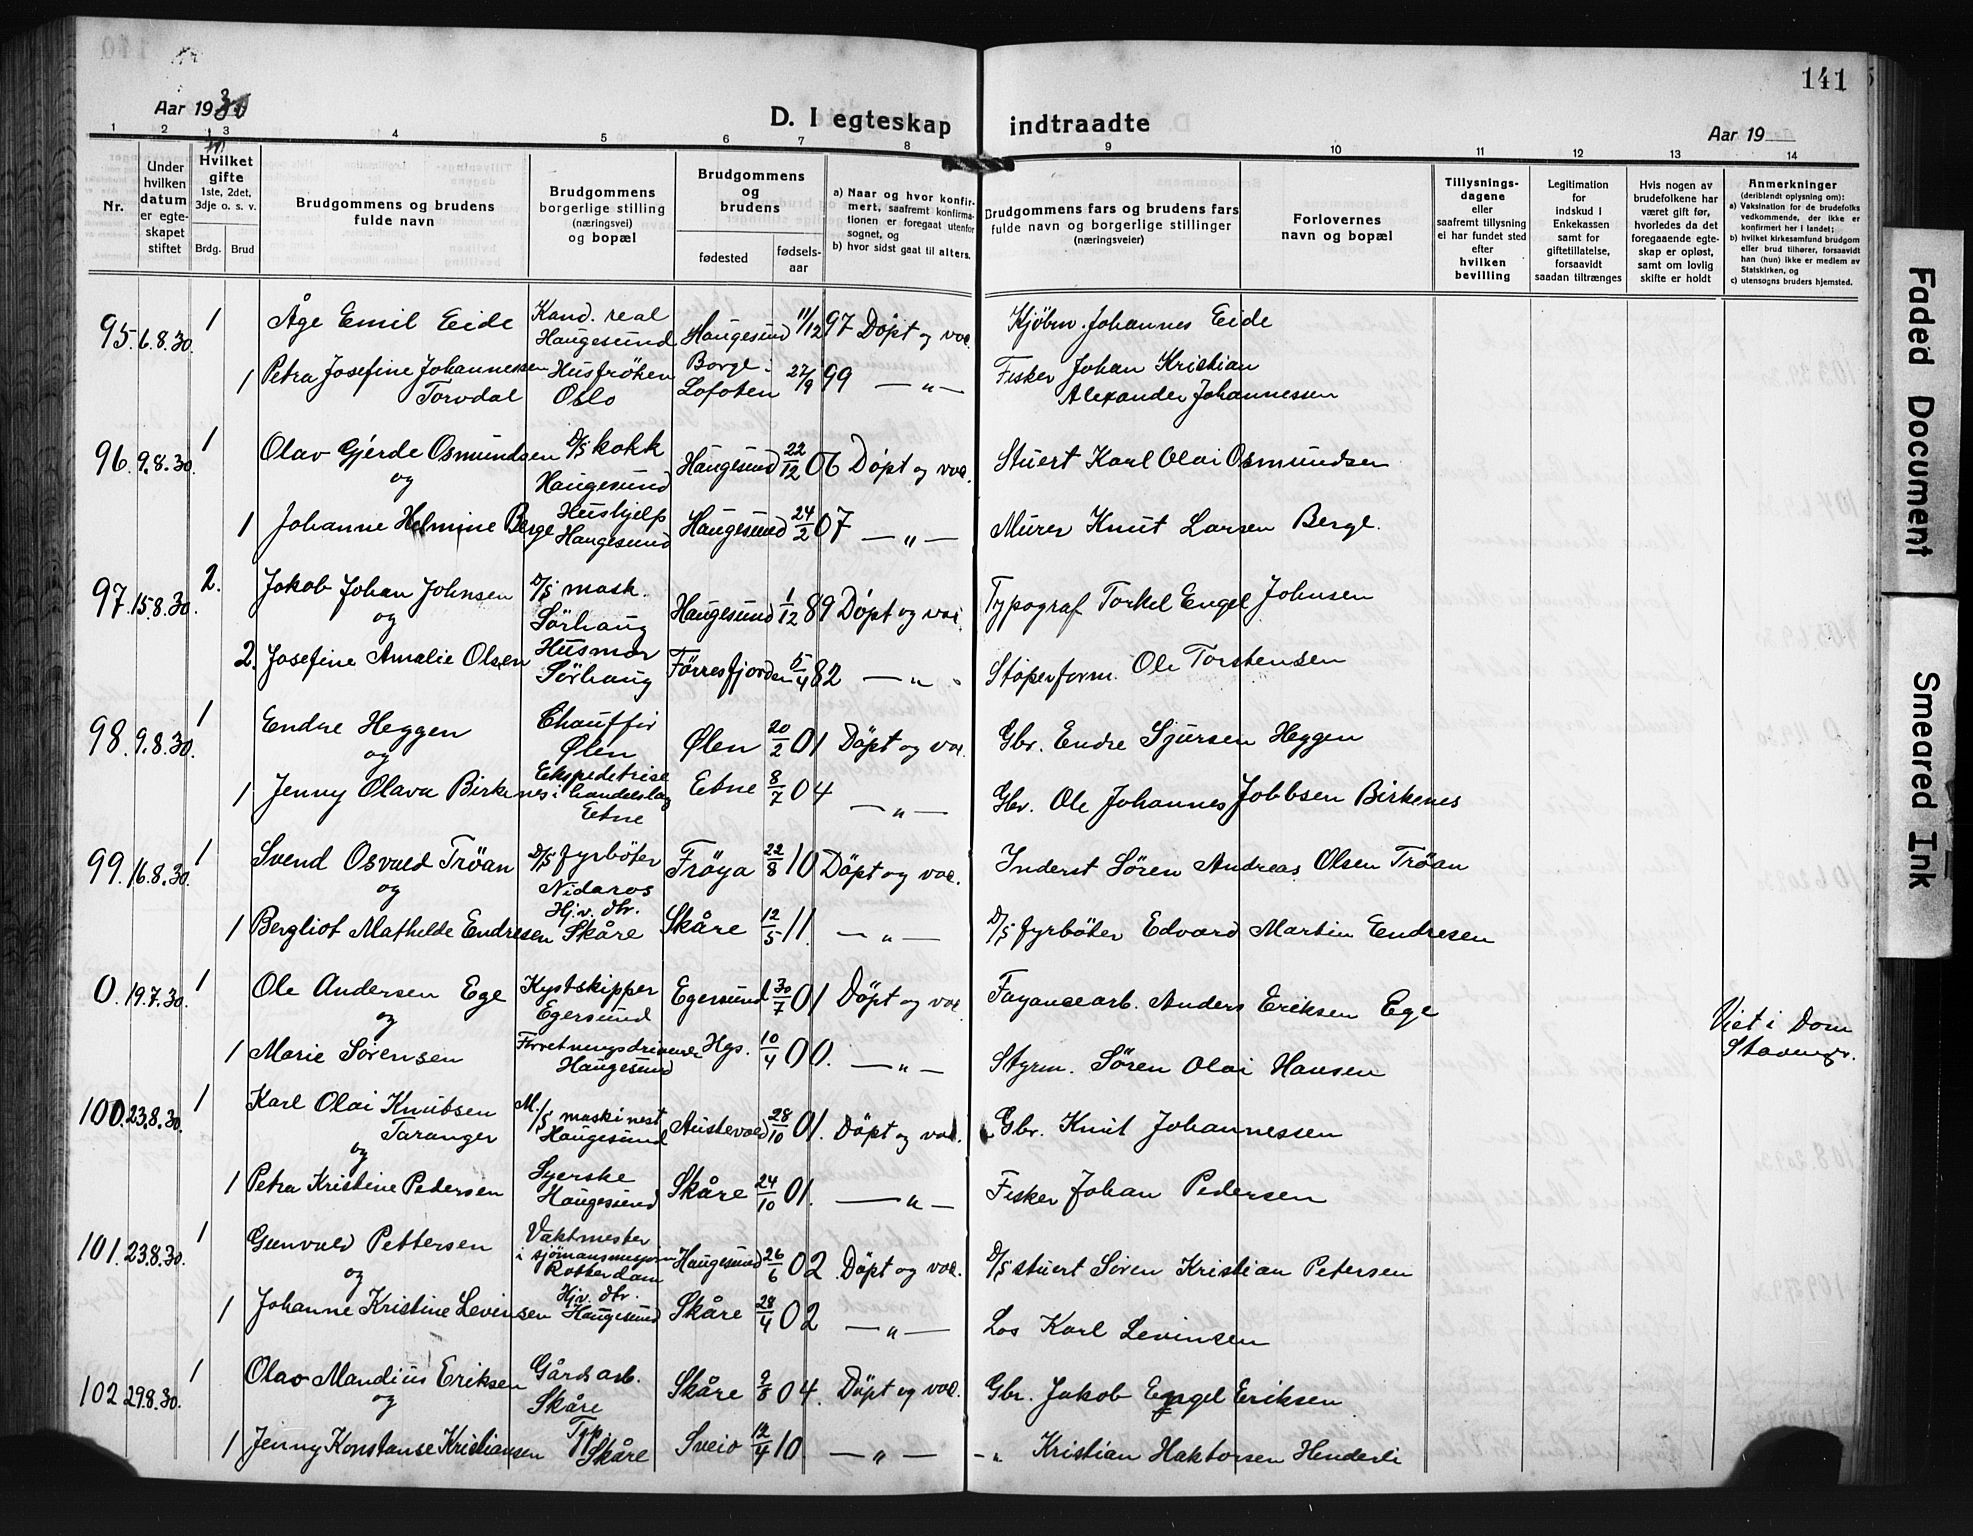 141
Aar 1930
D. I egteskap indtraadte
Aar 19
1 2 3 4 5 6 7 8 9 10 11 12 13 14
Nr.
Under hvilken datum er egteskapet stiftet
Hvilket gifte
1ste, 2det, 3dje o. s. v.
Brdg. Brud
Brudgommens og brudens fulde navn
Brudgommens borgerlige stilling (næringsvei) og bopæl
Brudgommens og brudens
fødested
fødselsaar
a) Naar og hvor konfirmert, saafremt konfirmationen er foregaat utenfor sognet, og
b) hvor sidst gaat til alters.
Brudgommens fars og brudens fars fulde navn og borgerlige stillinger (næringsveier)
Forlovernes navn og bopæl
Tillysningsdagene eller saafremt tillysning ei har fundet sted efter hvilken bevilling
Legitimation for indskud i Enkekassen samt for giftetillatelse, forsaavidt saadan tiltrænges
Hvis nogen av brudefolkene har været gift før, hvorledes da det foregaaende egteskap er opløst, samt om lovlig skifte er holdt
Anmerkninger (deriblandt oplysning om):
a) Vaksination for de brudefolks vedkommende, der ikke er konfirmert her i landet;
b) hvilket kirkesamfund brudgom eller brud tilhører, forsaavidt han (hun) ikke er medlem av Statskirken, og
c) utensogns bruders hjemsted.
95. 6.8.30. 1 Åge Emil Eide Kand. real Haugesund Haugesund 11/12 97 Döpt og vac. Kjöbm. Johannes Eide
1 Petra Josefine Johannessen Torvdal Husfröken Oslo Borge i Lofoten 27/9 99 — " — Fisker Johan Kristian Alexander Johannessen
96. 9.8.30. 1 Olav Gjerde Osmundsen D/S kokk Haugesund Haugesund 22/12 06 Döpt og vac. Stuert Karl Olai Osmundsen
og
1 Johanne Helmine Berge Hushjelp Haugesund Haugesund 24/2 07 — " — Murer Knut Larsen Berge.
97. 15.8.30. 2. Jakob Johan Johnsen D/S mask. Sörhaug Haugesund 1/12 89 Döpt og vac. Typograf Torkel Engel Johnsen
og
2. Josefine Amalie Olsen Husmor Sörhaug Førresfjorden 5/4 82 — " — Støperform. Ole Torstensen
98. 9.8.30. 1 Endre Heggen Chauffør Ølen Ølen 20/2 01 Döpt og vac. Gbr. Endre Sjursen Heggen
og
1 Jenny Olava Birkenes Ekspeditrise i handelslag Etne Etne 8/7 04 — " — Gbr. Ole Johannes Jobbsen Birkenes
99. 16.8.30. 1 Svend Osvald Tröan D/S fyrböter Nidaros Fröya 22/8 10 Döpt og vac. Inderst Sören Andreas Olsen Tröan
og
1 Bergliot Mathilde Endresen Hj.v. dtr. Skåre Skåre 12/5 11. — " — D/S fyrböter Edvard Martin Endresen
0. 19.7.30. 1 Ole Andersen Ege Kystskipper Egersund Egersund 30/7 01 Döpt og vac. Fayancearb. Anders Eriksen Ege Viet i Dom Stavanger.
og
1 Marie Sörensen Forretningsdrivende Haugesund Hgs. 10/4 00. — " — Styrm. Sören Olai Hansen
100. 23.8.30. 1 Karl Olai Knutsen Taranger M/S maskinest Haugesund Austevold 28/10 01. Döpt og vac. Gbr. Knut Johannessen
og
1 Petra Kristine Pedersen Syerske Haugesund Skåre 24/10 01. — " — Fisker Johan Pedersen
101. 23.8.30. 1 Gunvald Pettersen Vaktmester i sjömansmisjonen Rotterdam Haugesund 26/6 02 Döpt og vac. D/S stuert Sören Kristian Petersen
og
1 Johanne Kristine Levinsen Hj.v. dtr. Haugesund Skåre 28/4 02 — " — Los Karl Levinsen
102 29.8.30. 1 Olav Mandius Eriksen Gårdsarb. Skåre Skåre 9/8 04. Döpt og vac. Gbr. Jakob Engel Eriksen
og
1 Jenny Konstanse Kristiansen Skåre Sveio 12/4 10. — " — " Kristian Haktorsen Henderli
Faded Document
Smeared Ink